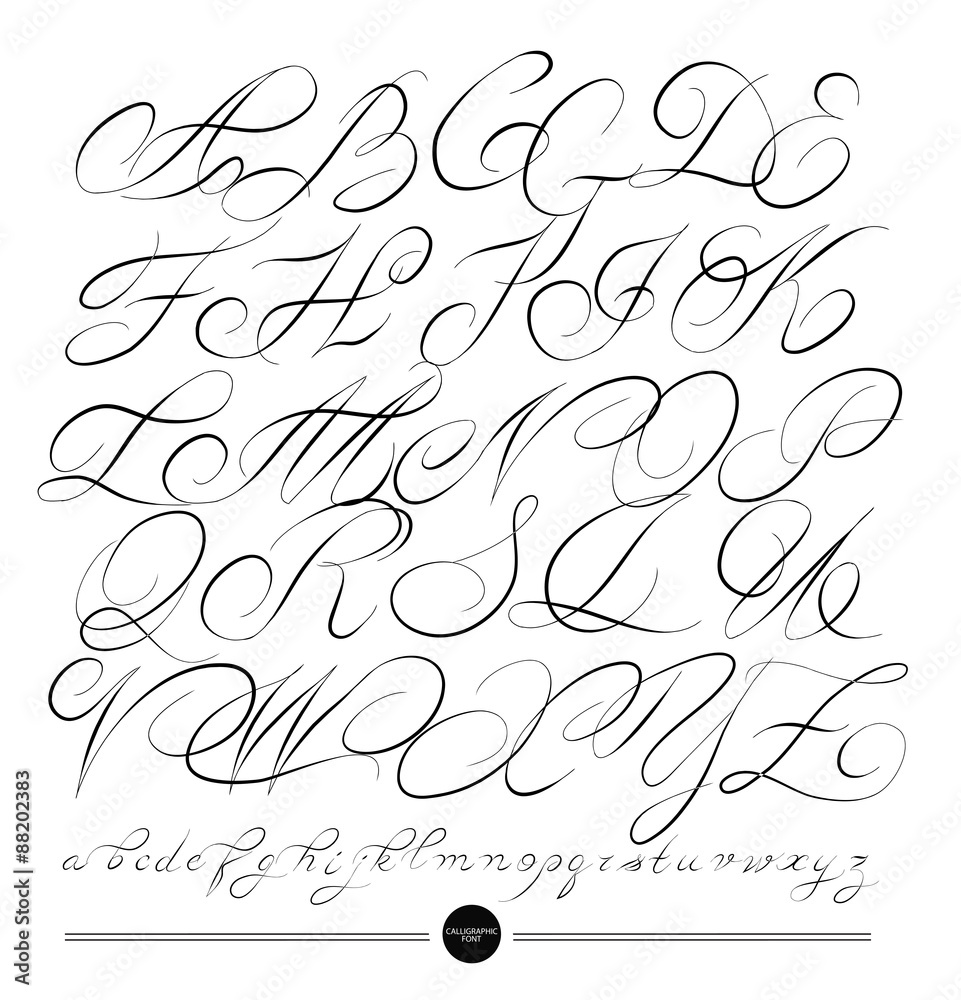 A B C G D E
F H J I K
L M N O P
Q R S T U
V W X Y Z
a b c d e f g h i j k l m n o p q r s t u v w x y z
CALLIGRAPHIC
FONT
Adobe Stock | #88202383